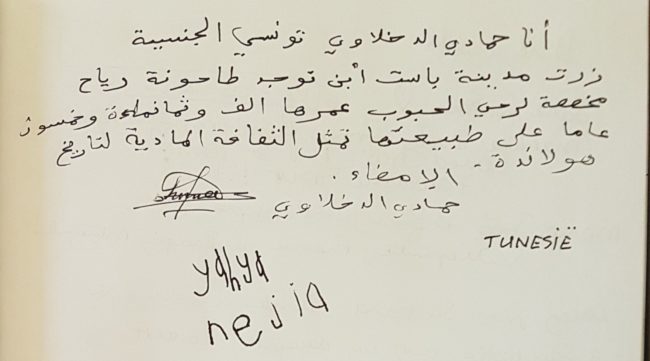 أنا حمادي الدخلاوي تونسي الجنسية
زرت مدينة باست أين توجد طاحونة رياح
مخصصة لرحي الحبوب عمرها الف وثمانمائة وخمسون
عاما على طبيعتها تمثل الثقافة المادية لتاريخ
هولاندة.
الإمضاء.
حمادي الدخلاوي
TUNESIË
yahya
nejia